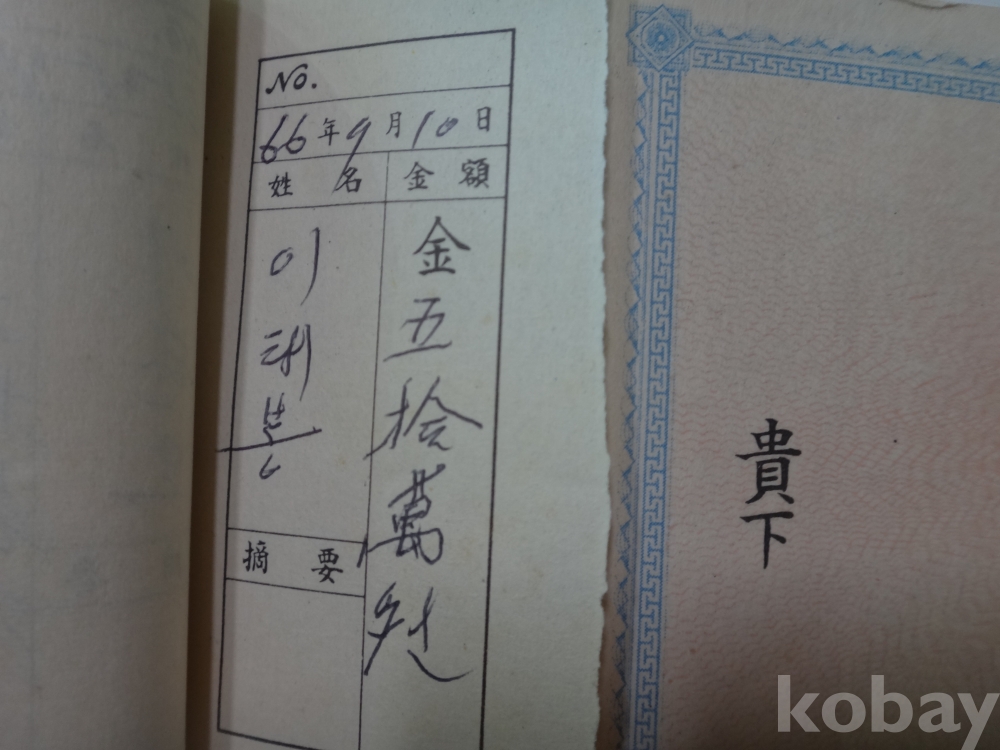 No.
66年9月10日
姓名 金額
金五拾萬원
이태봉
摘要
貴下
kobay